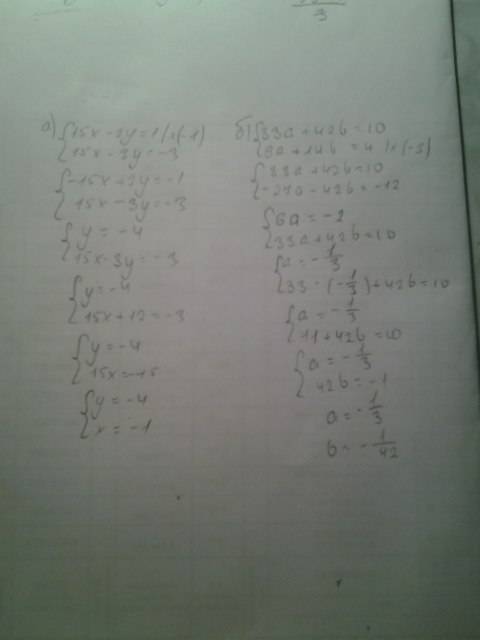 3
а) {15x-2y=1 |·(-1)
{15x-3y=-3
{-15x+2y=-1
15x-3y=-3
{y=-4
15x-3y=-3
{y=-4
15x+12=-3
{y=-4
15x=-15
{y=-4
x=-1
б) {33a+42b=10
9a+14b=4 |·(-3)
{33a+42b=10
-27a-42b=-12
{6a=-2
33a+42b=10
{a=-1/3
33·(-1/3)+42b=10
{a=-1/3
11+42b=10
{a=-1/3
42b=-1
a=-1/3
b=-1/42